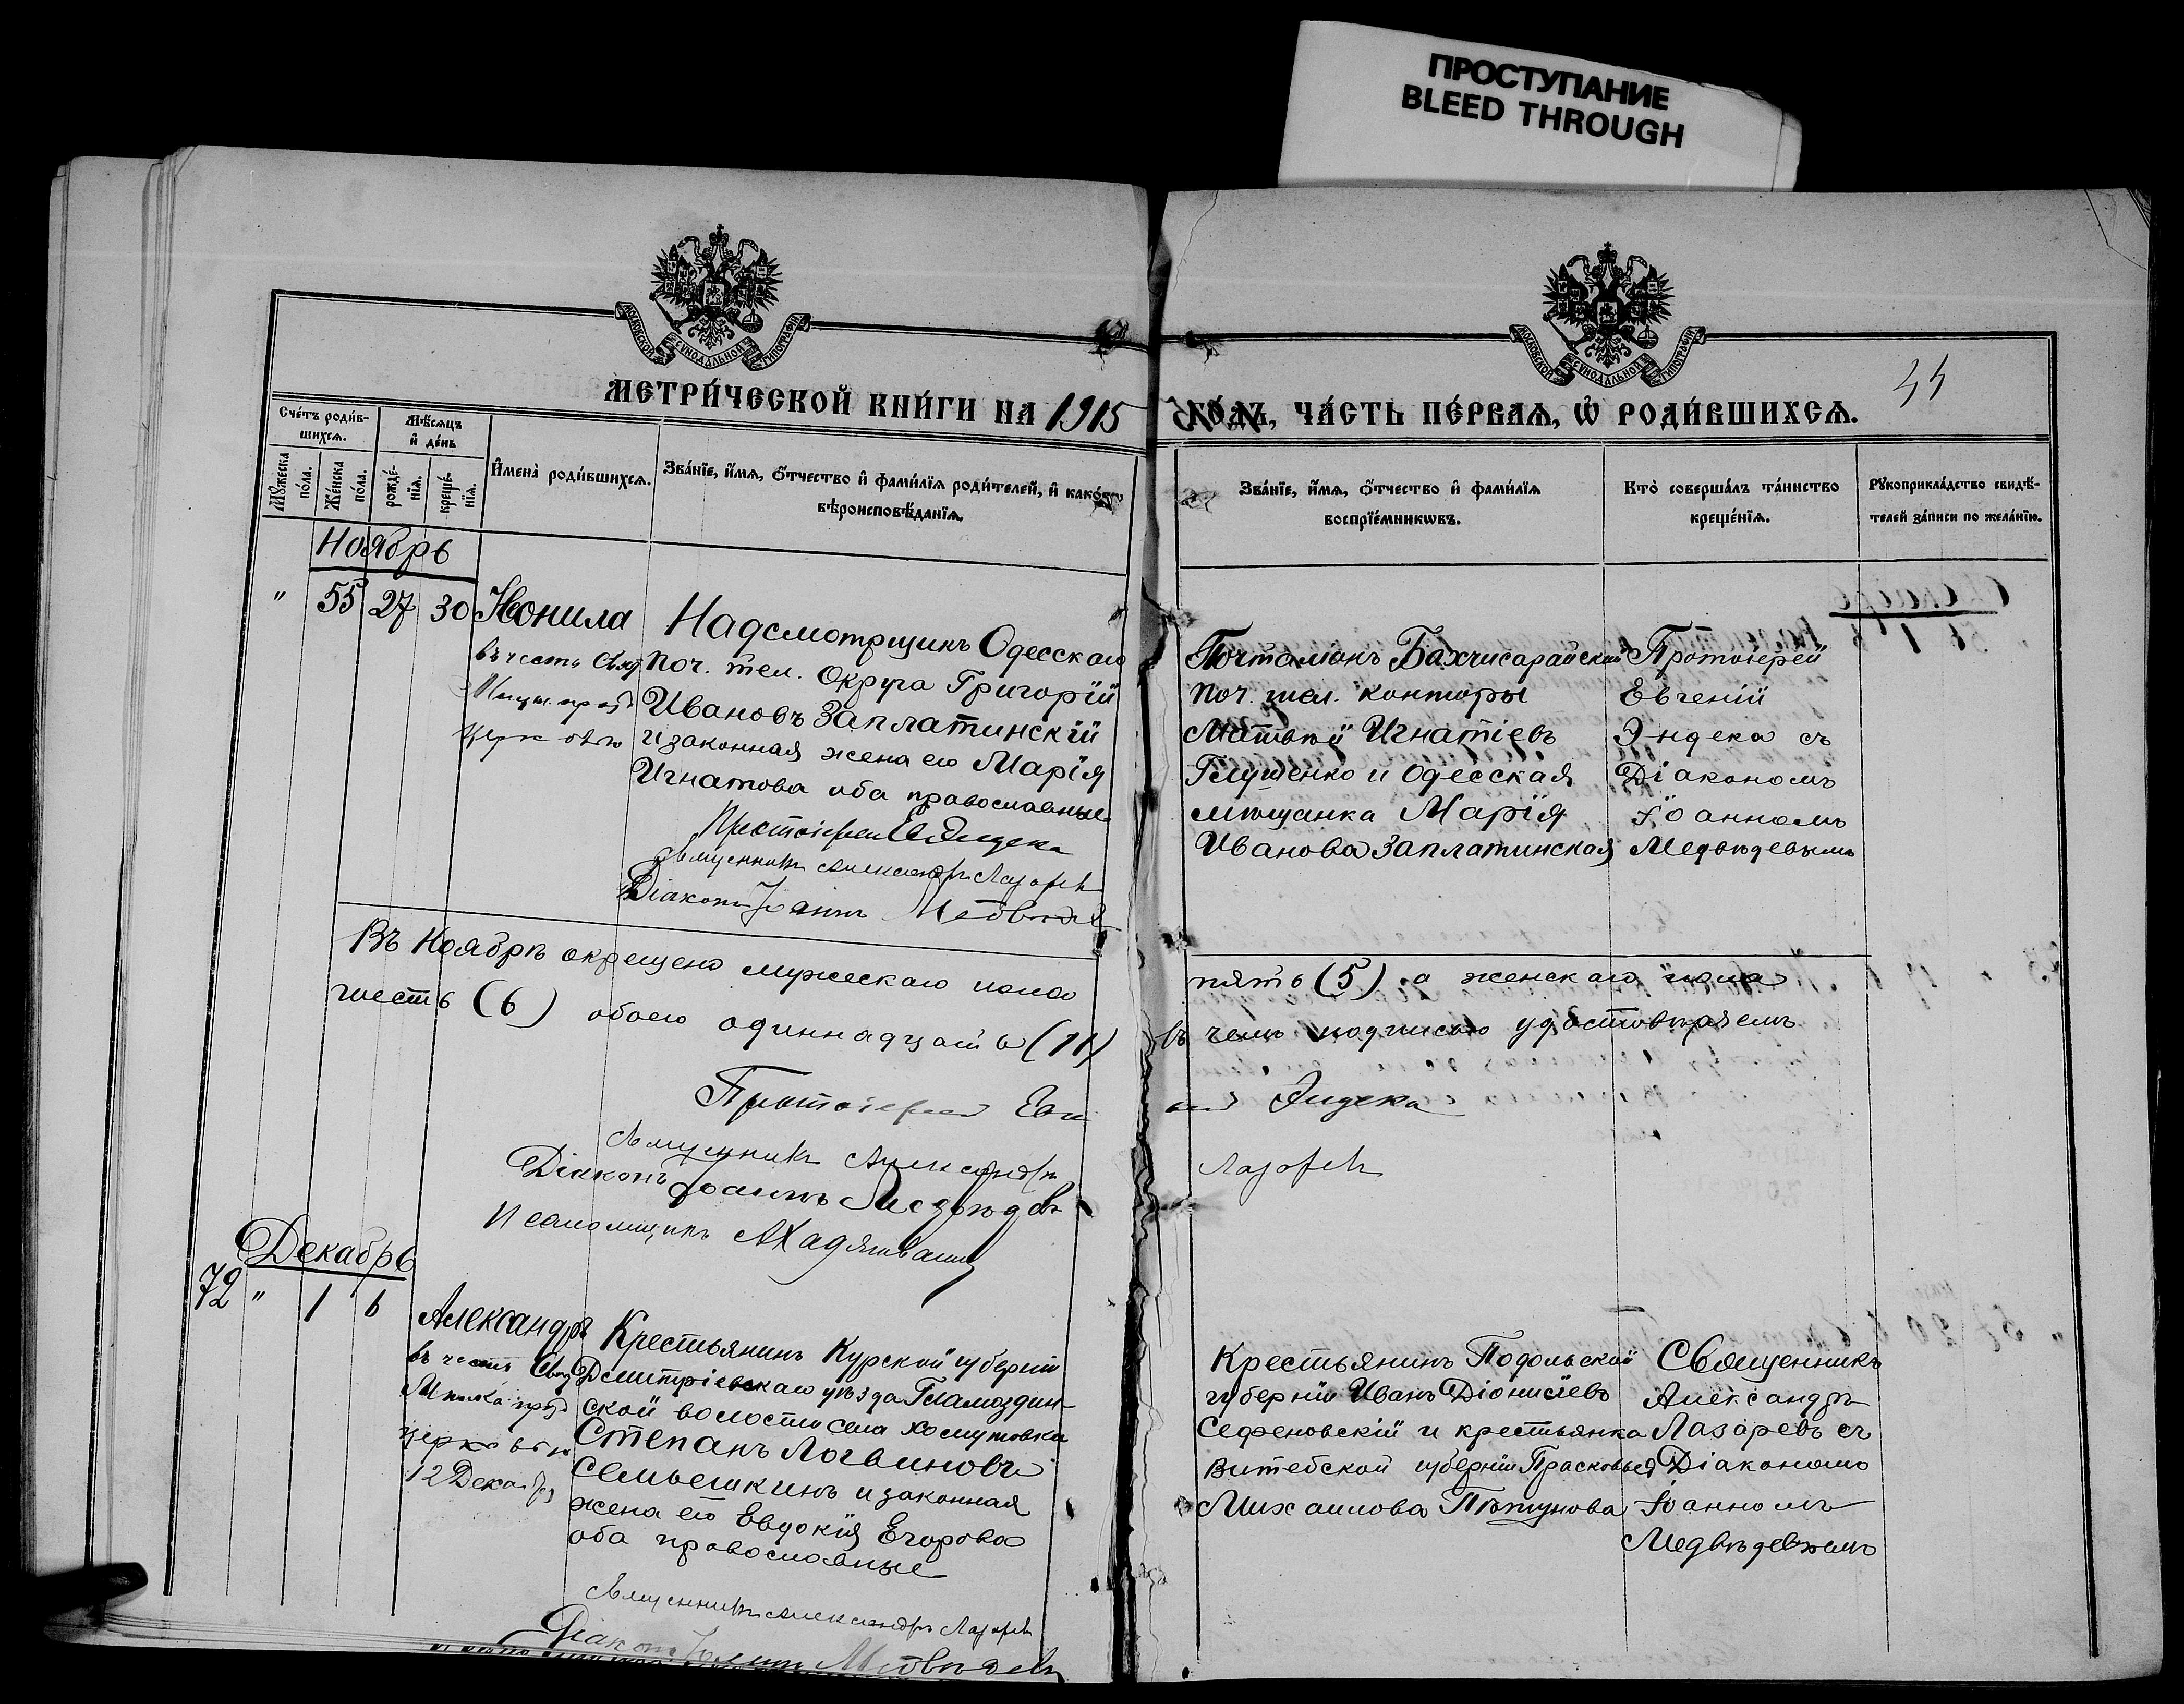 ПРОСТУПАНИЕ
BLEED THROUGH
МОСКОВСКОЙ СѴНОДАЛЬНОЙ ТИПОГРАФІИ
МОСКОВСКОЙ СѴНОДАЛЬНОЙ ТИПОГРАФІИ
44
МЕТРИ́ЧЕСКОЙ КНИ́ГИ НА 1915
ГО́ДЪ, ЧА́СТЬ ПЕ́РВАѦ, Ѡ҆ РОДИ́ВШИХСѦ.
Сче́тъ роди́в-
шихсѧ.
Мѣ́сѧцъ
и҆ де́нь
Мꙋ́жеска
по́ла.
Же́нска
по́ла.
рожде́-
нїѧ.
креще́-
нїѧ.
И҆мена̀ роди́вшихсѧ.
Зва́нїе, и҆́мѧ, ѻ҆́тчество и҆ фами́лїѧ роди́телей, и҆ како́гѡ
вѣроисповѣ́данїѧ.
Зва́нїе, и҆́мѧ, ѻ҆́тчество и҆ фами́лїѧ
воспрїе́мникѡвъ.
Кто̀ соверша́лъ та́инство
креще́нїѧ.
Рꙋкоприкла́дство свидѣ́-
телей за́писи по жела́нїю.
Ноябрь
" 55 27 30 Неонила
въ честь Свят
празд
церковью
Надсмотрщикъ Одесскаго
поч. тел. Округа Григорій
Ивановъ Заплатинскій
и законная жена его Марія
Игнатова оба православные
Протоіерей Е Эндека
Священникъ Александръ Лазаревъ
Діаконъ Іоаннъ Медвѣдевъ
Почталіонъ Бахчисарайской
поч. тел. конторы
Матвѣй Игнатіевъ
Глущенко и Одесская
мѣщанка Марія
Иванова Заплатинская
Протоіерей
Евгеній
Эндека съ
Діакономъ
Іоанномъ
Медвѣдевымъ
Въ Ноябрѣ окрещено мужескаго пола
пять (5) а женскаго пола
шесть (6) обоего одиннадцать (11)
въ чемъ подписью удостовѣряемъ
Протоіерей Евгеній Эндека
Священникъ Александръ Лазаревъ
Діаконъ Іоаннъ Медвѣдевъ
Псаломщикъ
Декабрь
72 " 1 6 Александръ
въ честь Свят
празд
церковью
12 Декабря
Крестьянинъ Курской губерніи
Дмитріевскаго уѣзда Гламаздин-
ской волости села Хомутовка
Степанъ Логвиновъ
Семьешкинъ и законная
жена его Евдокія Егорова
оба православные
Священникъ Александръ Лазаревъ
Діаконъ Іоаннъ Медвѣдевъ
Крестьянинъ Подольской
губерніи Иванъ Діонисіевъ
Сефеновскій и крестьянка
Витебской губерніи Прасковья
Михаилова Пѣтунова
Священникъ
Александръ
Лазаревъ съ
Діакономъ
Іоанномъ
Медвѣдевымъ